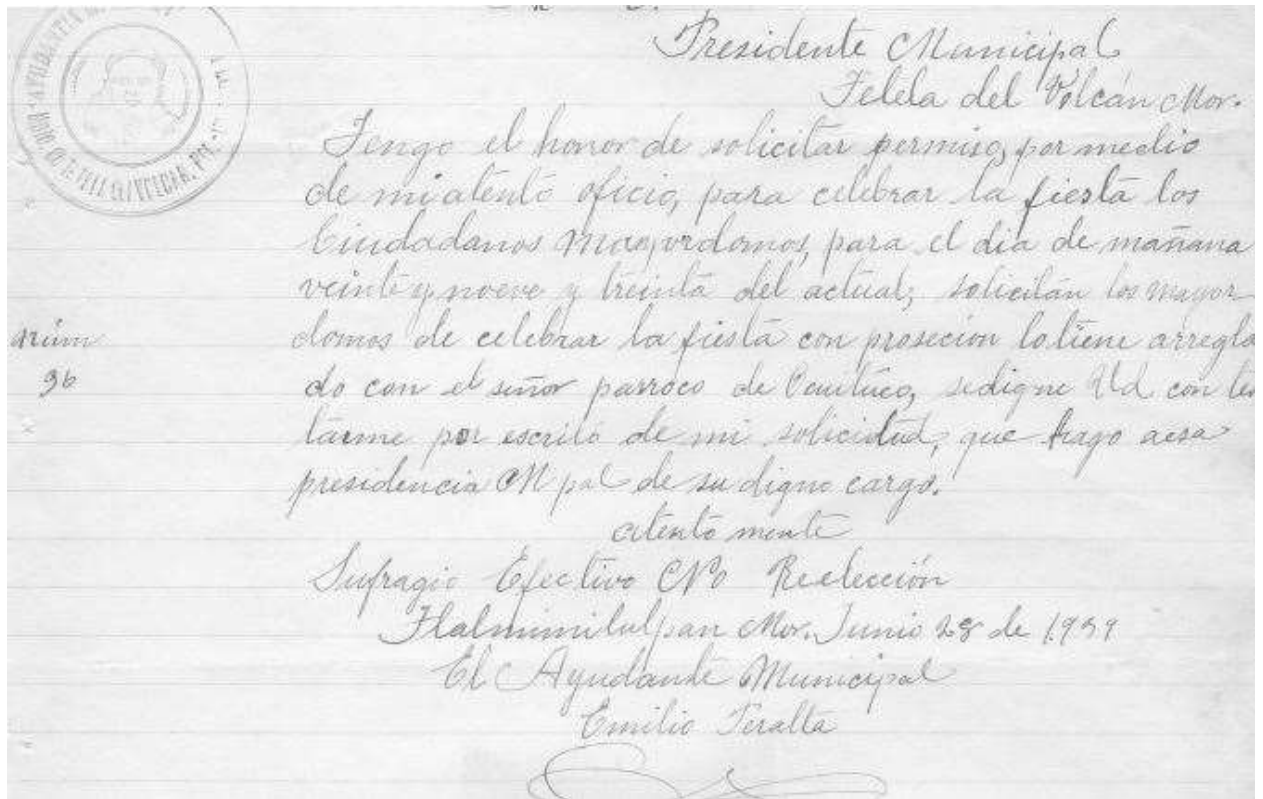 Presidente Municipal
Tetela del Volcán Mor.
Tengo el honor de solicitar permiso, por medio
de mi atento oficio, para celebrar la fiesta los
Ciudadanos Mayordomos, para el dia de mañana
veinte y nueve y treinta del actual; solicitan los mayor
domos de celebrar la fiesta con prosecion lo tiene arregla
núm
96
do con el señor parroco de Ocuituco, sedigne Ud con tes
tarme por escrito de mi solicitud, que hago aesa
presidencia M pal de su digno cargo.
atenta mente
Sufragio Efectivo No Reelección
Tlalmimilulpan Mor. Junio 28 de 1.959
El Ayudante Municipal
Emilio Peralta